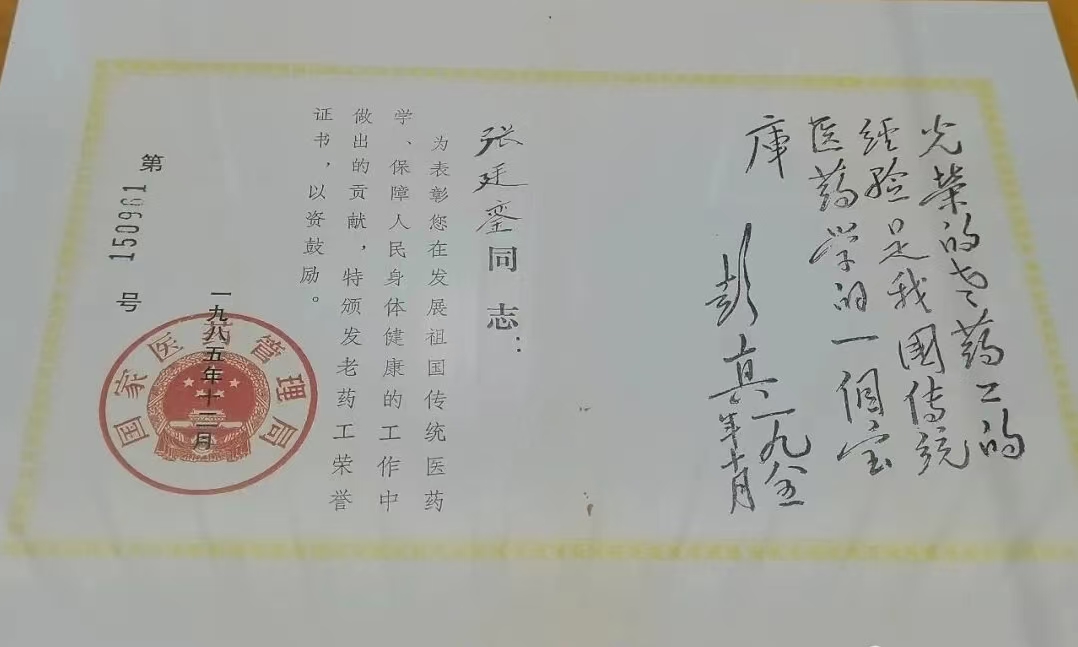 光荣的老药工的
经验是我國传统
医药学的一個宝
库
彭真一九八五
年十月
张廷銮同志：
为表彰您在发展祖国传统医药
学、保障人民身体健康的工作中
做出的贡献，特颁发老药工荣誉
证书，以资鼓励。
第150961号
国家医药管理局
一九八五年十二月